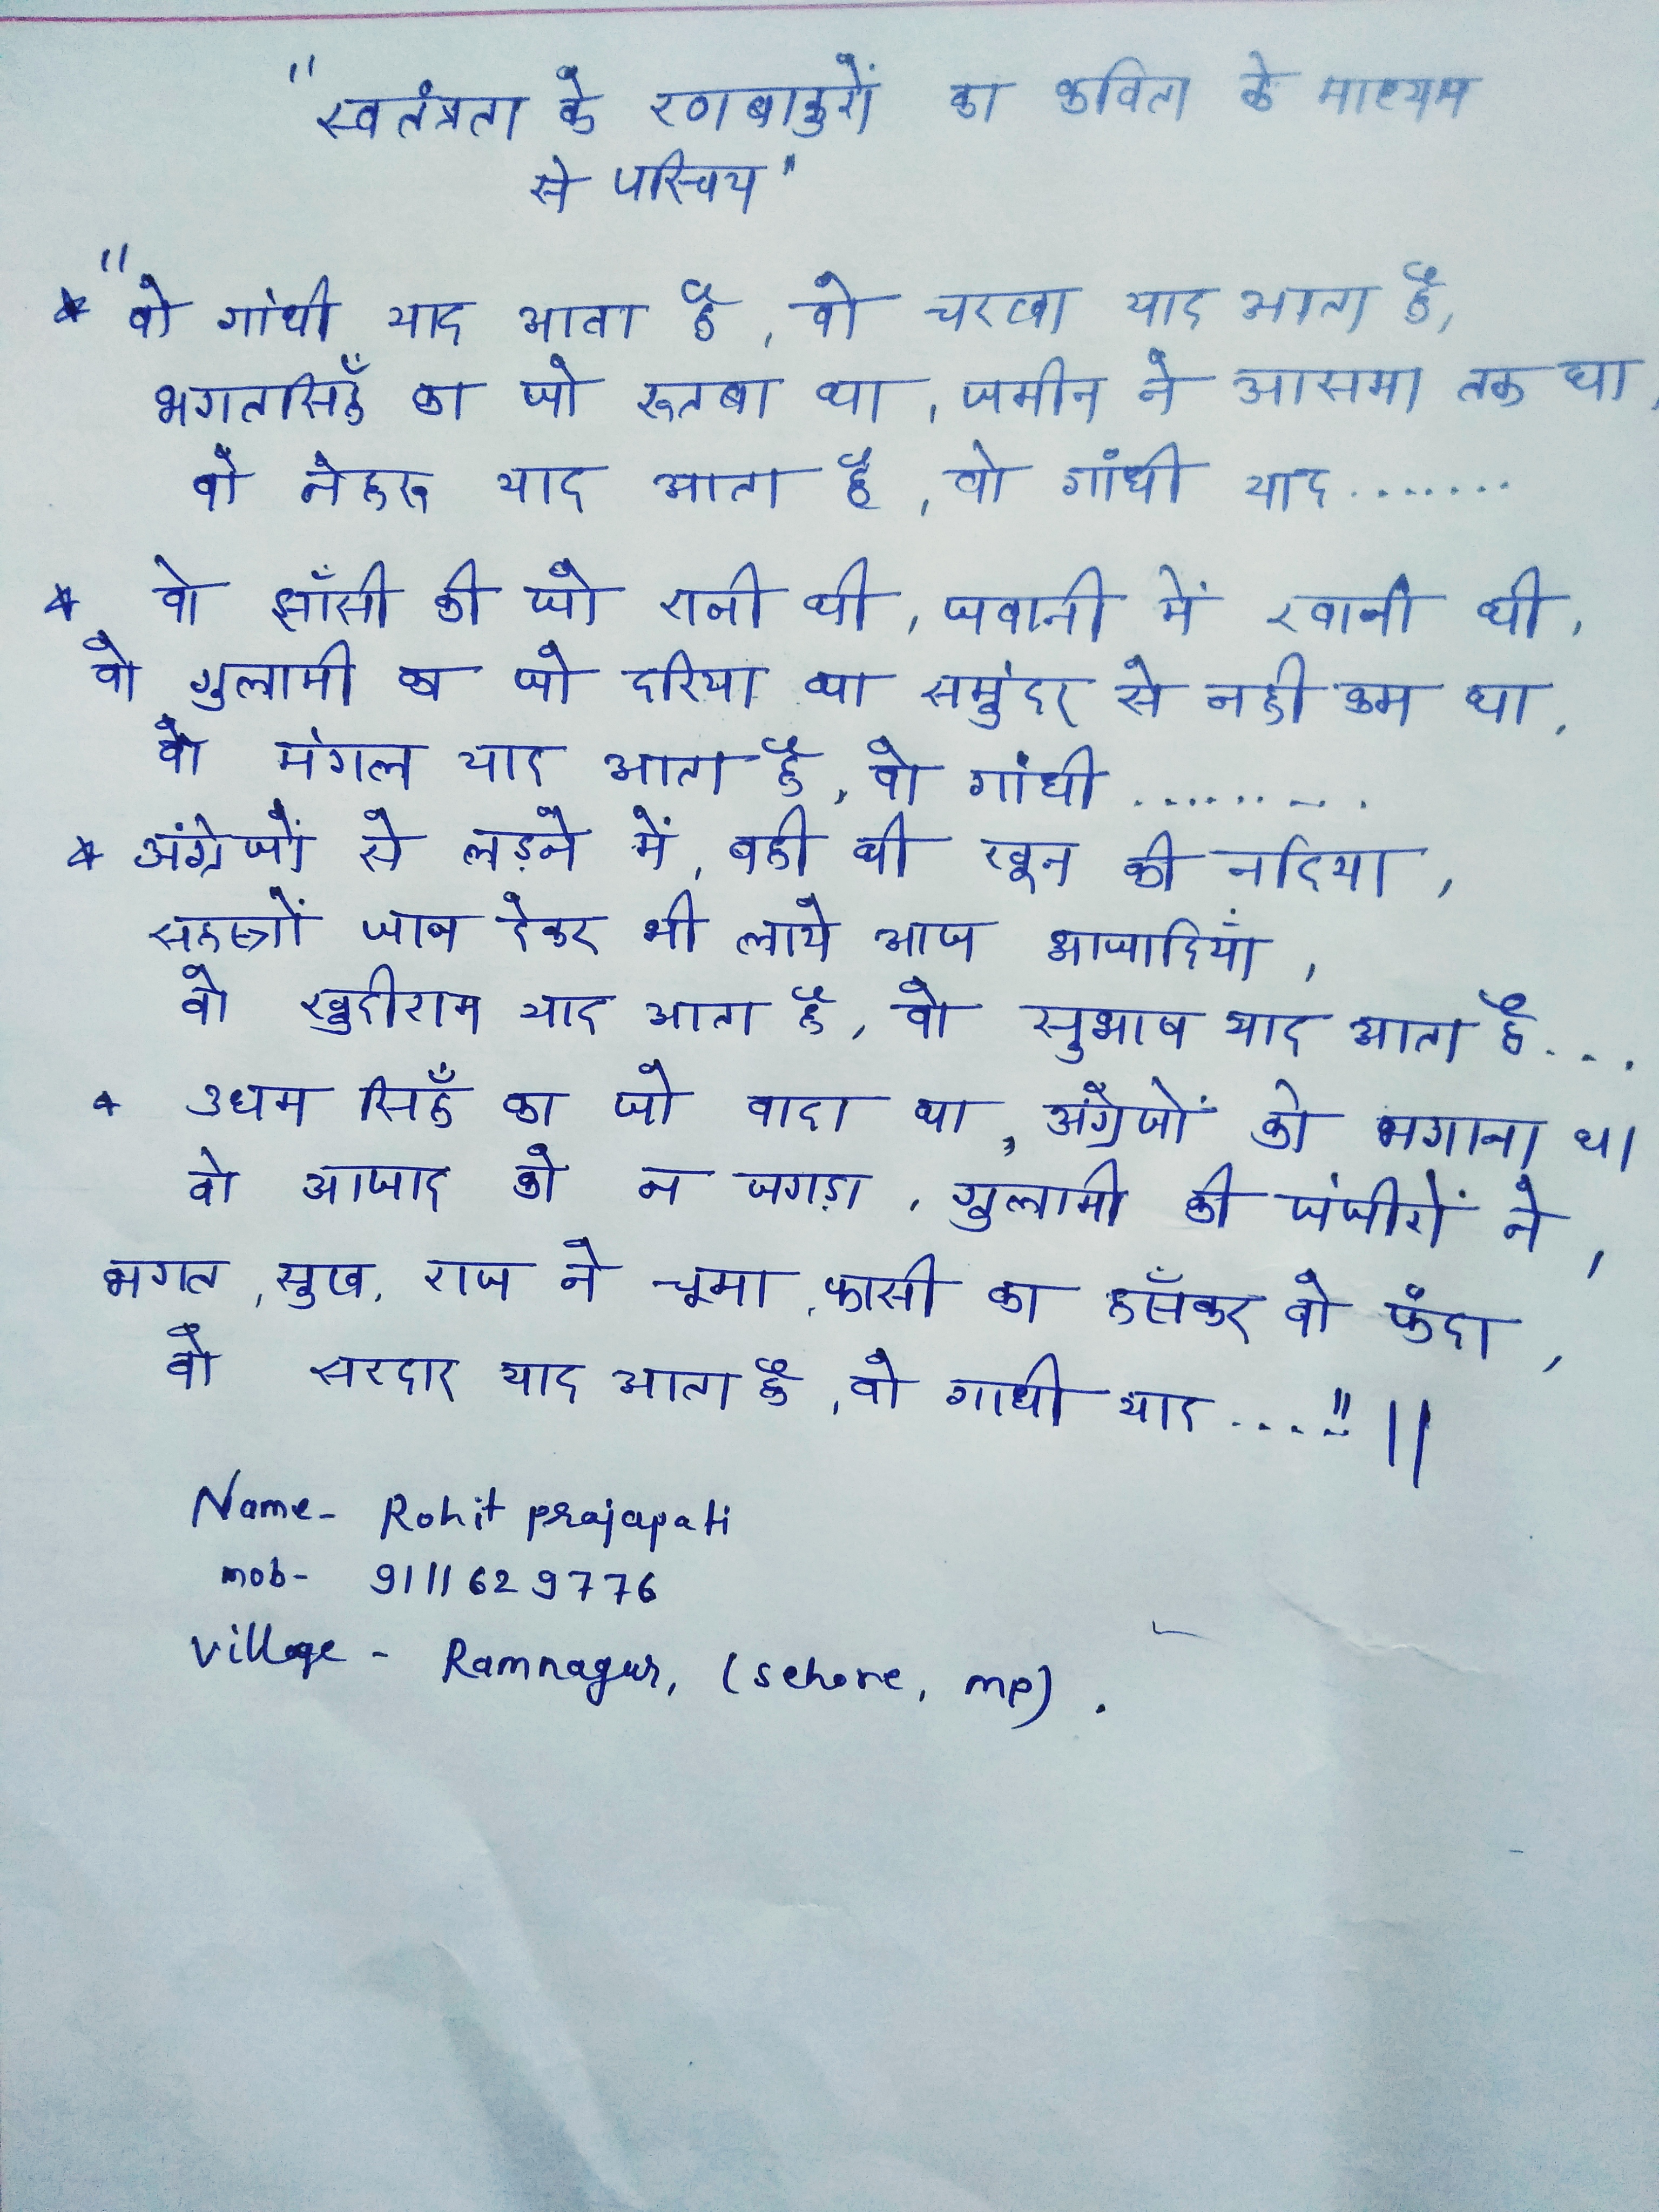 "स्वतंत्रता के रणबाकुरों का कविता के माध्यम
से परिचय"
* "वो गांधी याद आता है, वो चरखा याद आता है,
भगतसिहँ का जो रूतबा था, जमीन ने आसमा तक था,
वो नेहरू याद आता है, वो गांधी याद.......
* वो झाँसी की जो रानी थी, जवानी में रवानी थी,
वो गुलामी का जो दरिया था समुंदर से नही कम था,
वो मंगल याद आता है, वो गांधी .........
* अंग्रेजों से लड़ने में, बही थी खून की नदिया,
सहस्त्रों जान देकर भी लाये आज आजादियां,
वो खुदीराम याद आता है, वो सुभाष याद आता है...
* उधम सिहँ का जो वादा था, अंग्रेजों को भगाना था
वो आजाद को न जगड़ा, गुलामी की जंजीरों ने,
भगत, सुख, राज ने चूमा, फासी का हसँकर वो फंदा,
वो सरदार याद आता है, वो गाधी याद...." ||
Name- Rohit prajapati
mob- 9111629776
Village - Ramnagar, (sehore, mp).